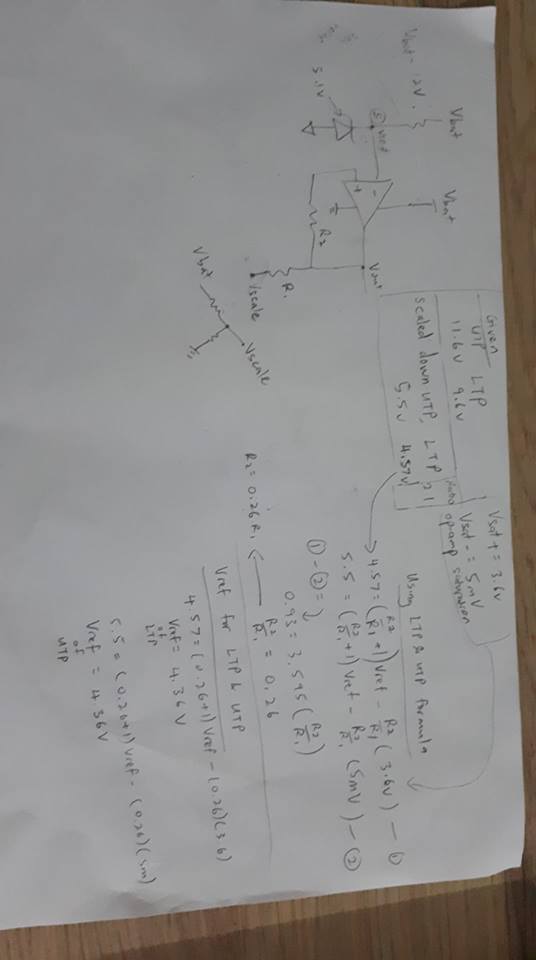 Vbat
Vbat = 12V.
Vbat
Vref
5.1V
-
+
Vout
R2
R1
Vscale
Vbat
Vscale
Given
UTP LTP
11.6V 9.6V
scaled down UTP, LTP
5.5V 4.57V
Vsat+ = 3.6V
Vsat- = 5mV
op-amp saturation
Using LTP & UTP formula
4.57 = (R2/R1 + 1) Vref - R2/R1 (3.6V) — ①
5.5 = (R2/R1 + 1) Vref - R2/R1 (5mV) — ②
① - ② =>
0.93 = 3.595 (R2/R1)
R2/R1 = 0.26
R2 = 0.26 R1
Vref for LTP & UTP
4.57 = (0.26+1) Vref - (0.26)(3.6)
Vref of LTP = 4.36V
5.5 = (0.26+1) Vref - (0.26)(5m)
Vref of UTP = 4.36V